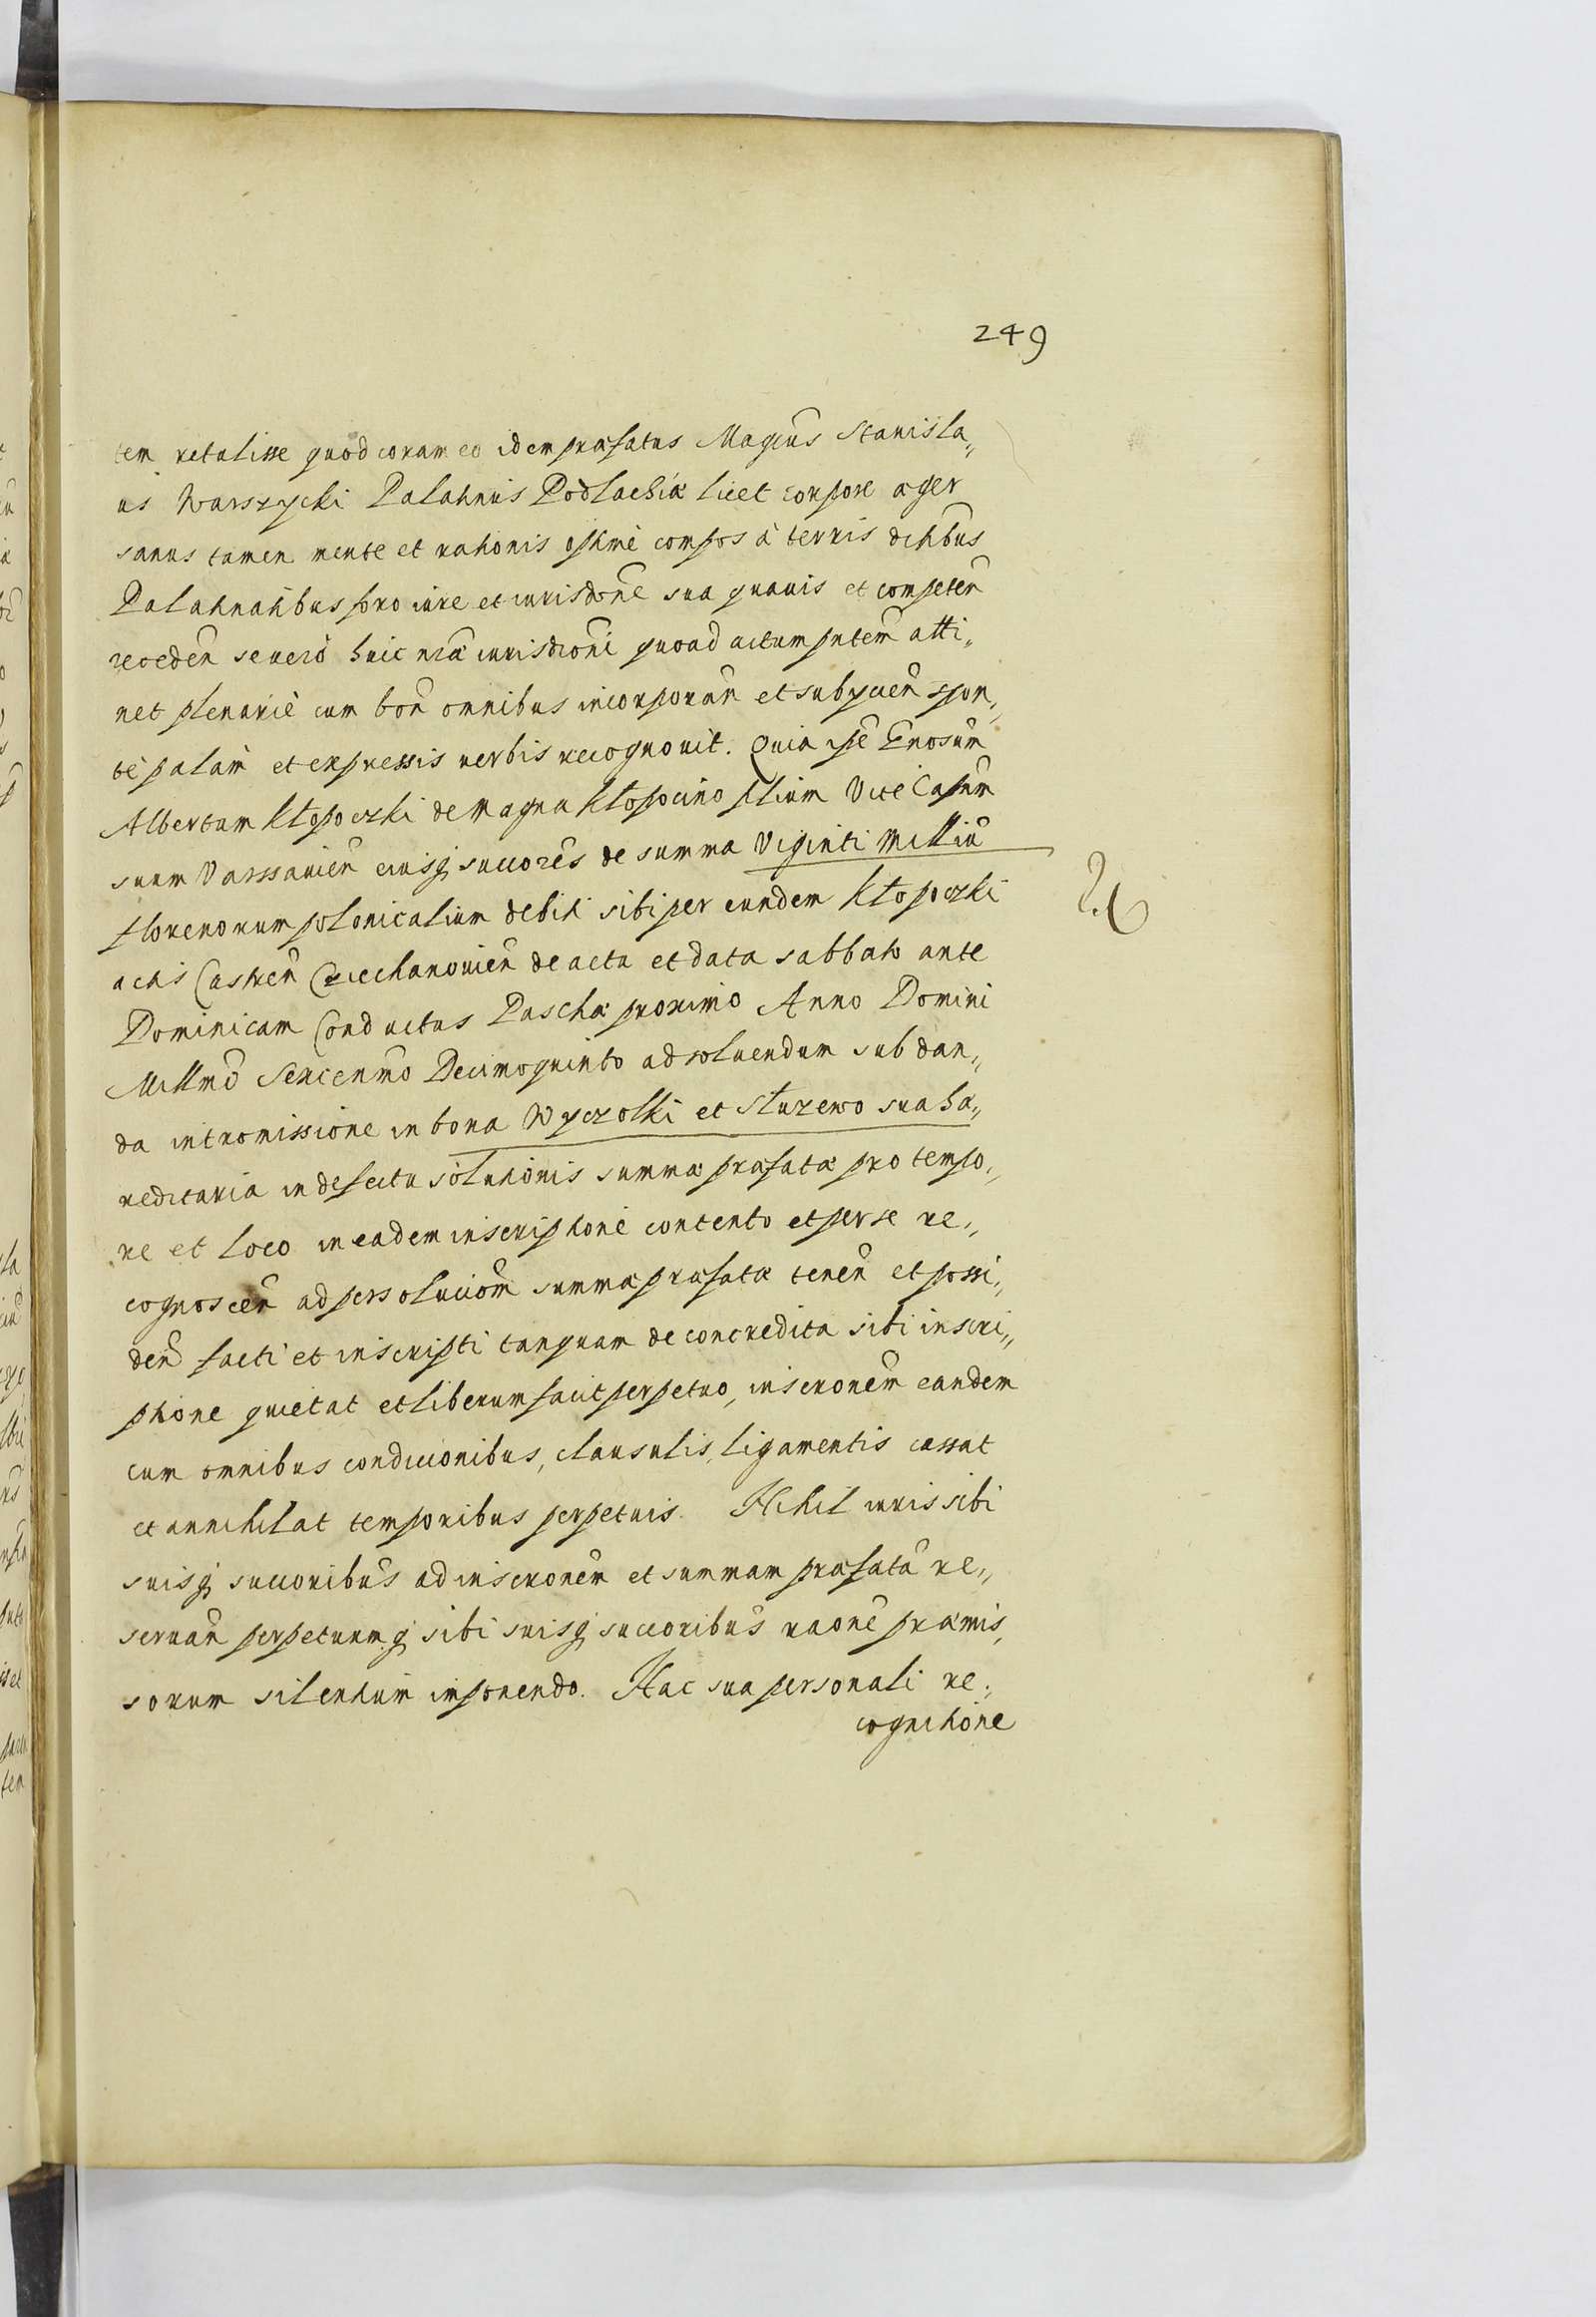 249
tem retulisse quod coram eo idem præfatus Magcus Stanisla„
us Warszycki Palatinus Podlachiæ licet corpore æger
sanus tamen mente et rationis optime compos à terris dictibus
Palatinatibus pro iure et iurisdone sua quauis et competen
receden se uerò huic nræ iurisdioni quoad actum pntem atti„
net plenariè cum bon omnibus incorporan et subycien spon„
tè palàm et expressis uerbis recognouit. Quia ipse Gnosum
Albertum Kłopoczki de Magna Kłopocino filium Vice Capnm
suum Varssauien eiusq succores de summa Viginti Milliu
florenorum polonicalium debiti sibi per eundem Kłopoczki
actis Castren Cziechanouien de actu et data sabbato ante
Dominicam Conductus Paschæ proximo Anno Domini
Millmo Sexcenmo Decimoquinto ad soluendum sub dan„
da intromissione in bona Wyczolki et Służewo sua hæ„
reditaria in defectu solutionis summæ præfatæ pro tempo„
re et loco in eadem inscriptione contento et per se re„
cognoscen ad persoluciom summæ præfatæ tenen et possi„
den facti et inscripti tanquam de concredita sibi inscri„
ptione quietat et liberum facit perpetuo, inscronem eandem
cum omnibus condicionibus, clausulis, ligamentis cassat
et annihilat temporibus perpetuis. Nihil iuris sibi
suisq succoribus ad inscronem et summam præfatam re„
seruan perpetuumq sibi suisq succoribus raone præmis„
sorum silentium imponendo. Hac sua personali re„
cognitione